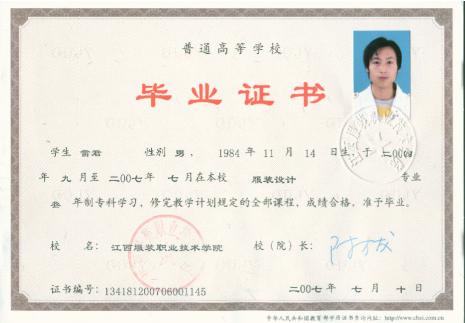 普通高等学校
毕业证书
学生 雷君 性别 男，1984 年 11 月 14 日生，于 二〇〇四
年 九 月至 二〇〇七 年 七 月在本校 服装设计 专业
叁 年制专科学习，修完教学计划规定的全部课程，成绩合格，准予毕业。
校 名： 江西服装职业技术学院 校（院）长：
证书编号：134181200706001145 二〇〇七 年 七 月 十 日
中华人民共和国教育部学历证书查询网址：http://www.chsi.com.cn